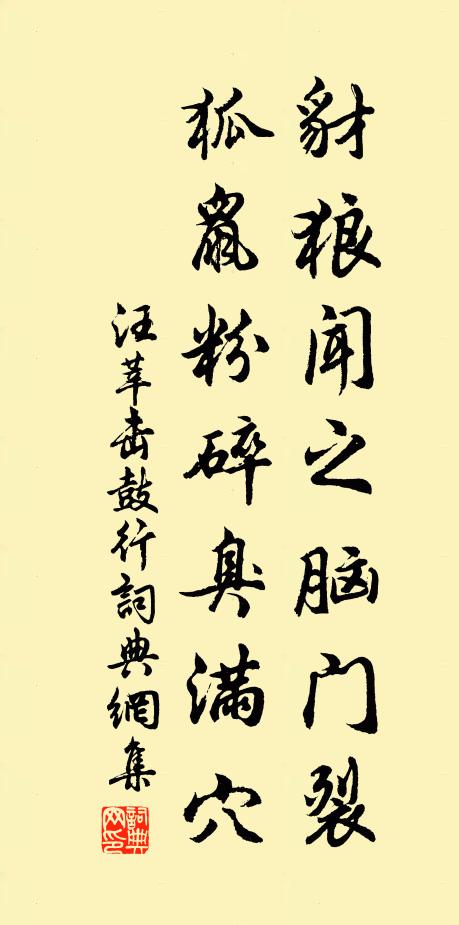 豺狼闻之脑门裂
狐鼠粉碎臭满穴
汪莘击鼓行詞典網集
詞典網印